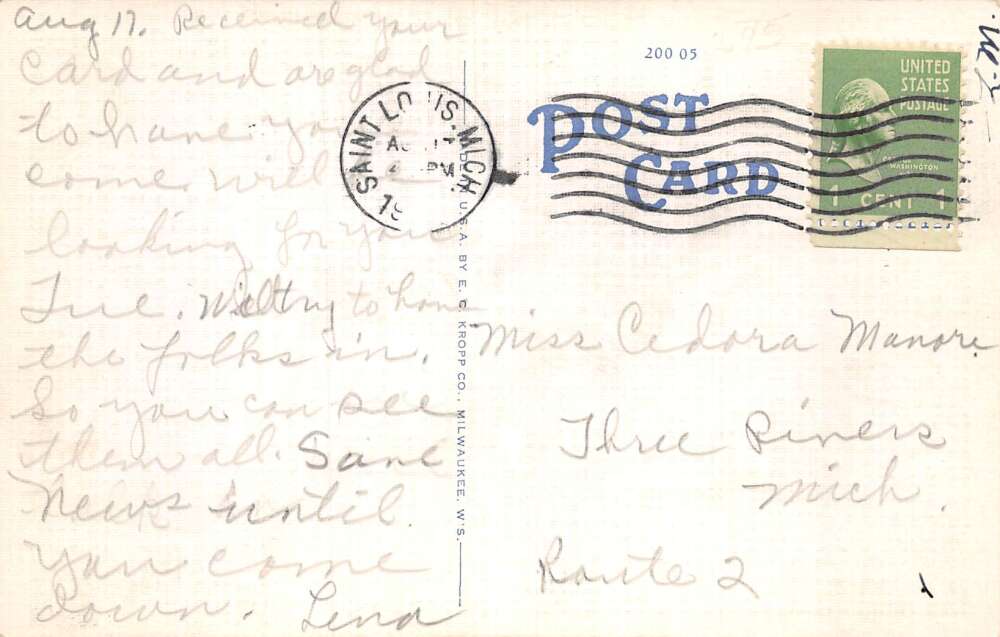 Aug 17. Received your
Card and are glad
to have you
come. will be
looking for you
Tue. Will try to have
the folks in.
So you can see
them all. Save
News until
you come
down. Lena
SAINT LOUIS. MICH
PM
19
U.S.A. BY E. C. KROPP CO., MILWAUKEE, WIS.
200 05
POST
CARD
UNITED
STATES
POSTAGE
WASHINGTON
1 CENT 1
Miss Cedora Manore
Three Rivers
Mich.
Route 2